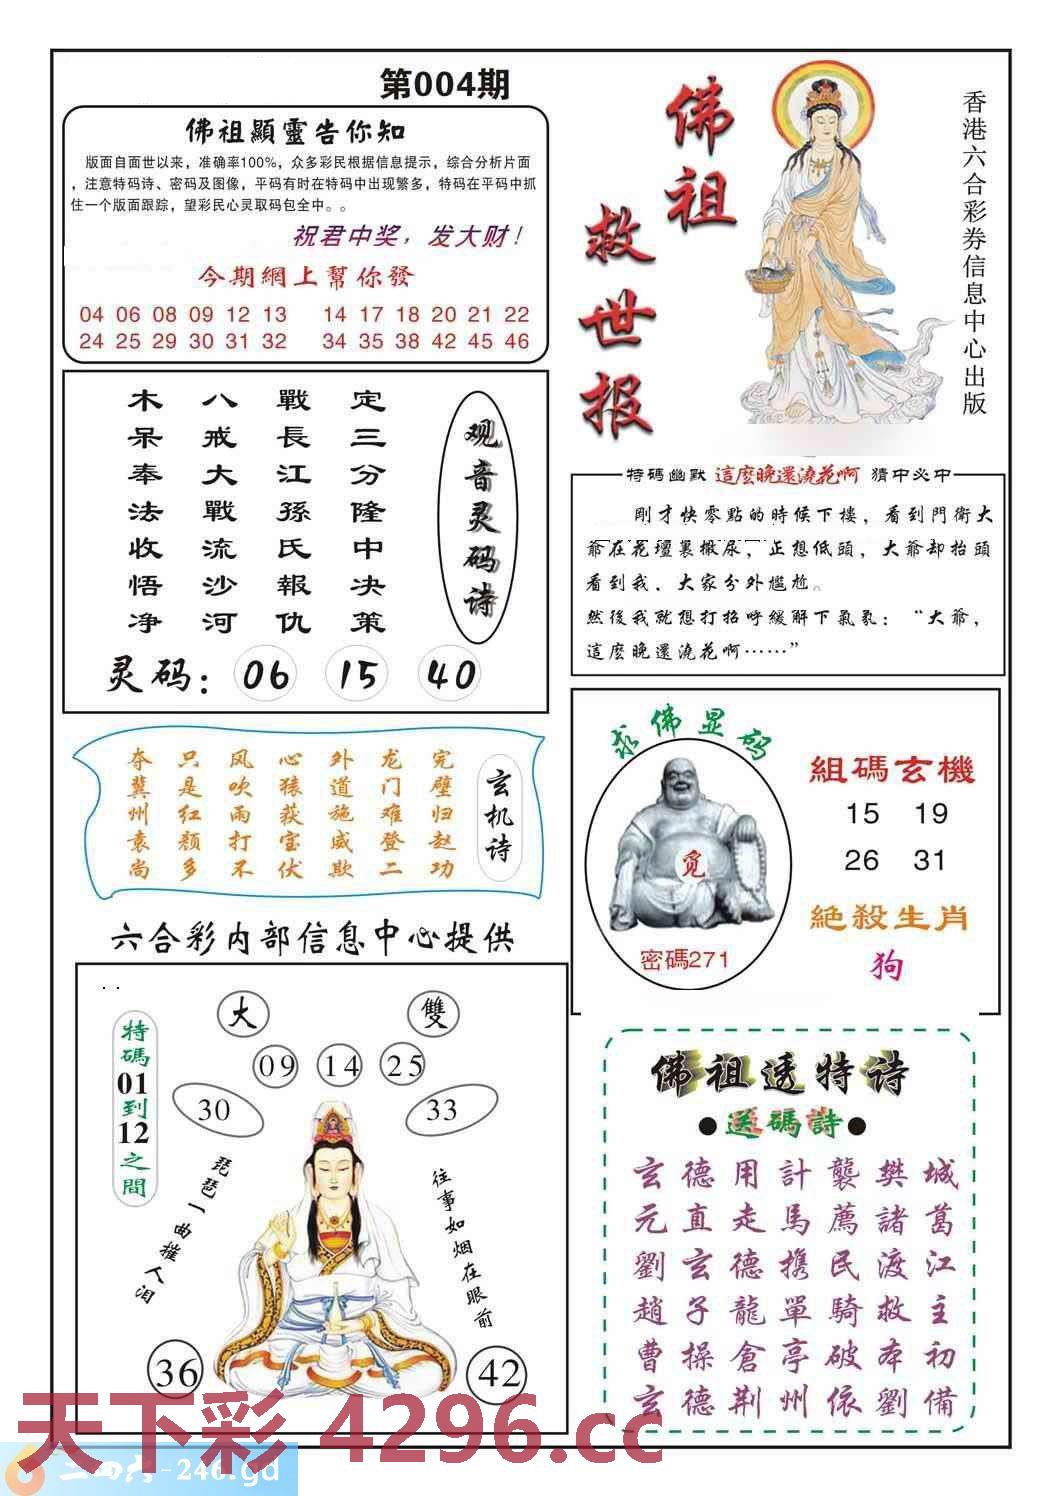 第004期
佛祖顯靈告你知
版面自面世以来，准确率100%，众多彩民根据信息提示，综合分析片面
，注意特码诗、密码及图像，平码有时在特码中出现繁多，特码在平码中抓
住一个版面跟踪，望彩民心灵取码包全中。。
祝君中奖，发大财！
今期網上幫你發
04 06 08 09 12 13 14 17 18 20 21 22
24 25 29 30 31 32 34 35 38 42 45 46
佛祖
救世报
香港六合彩券信息中心出版
观音灵码诗
定三分隆中决策
戰長江孫氏報仇
八戒大戰流沙河
木呆奉法收悟净
灵码：06 15 40
特碼幽默 這麽晚還澆花啊 猜中必中
剛才快零點的時候下樓，看到門衛大
爺在花壇裏撒尿，正想低頭，大爺却抬頭
看到我，大家分外尷尬。
然後我就想打招呼緩解下氣氛：“大爺，
這麽晚還澆花啊……”
玄机诗
完璧归赵功
龙门难登二
外道施威欺
心猿获宝伏
风吹雨打不
只是红颜多
夺冀州袁尚
求佛显码
觅
密碼271
組碼玄機
15 19
26 31
絕殺生肖
狗
六合彩内部信息中心提供
特碼01到12之間
大
雙
09 14 25
30
33
琵琶一曲摧人泪
往事如烟在眼前
36
42
佛祖透特诗
●送碼詩●
玄德用計襲樊城
元直走馬薦諸葛
劉玄德携民渡江
趙子龍單騎救主
曹操倉亭破本初
玄德荆州依劉備
天下彩 4296.cc
二四六-246.gd